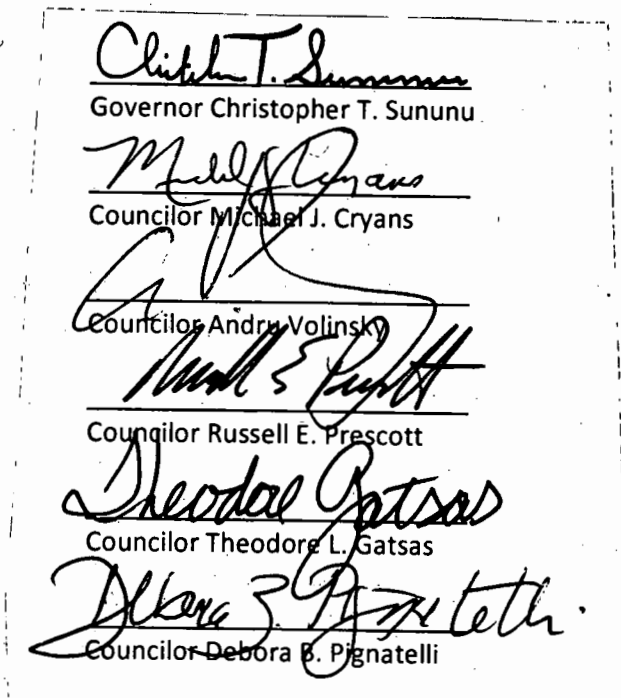 Christopher T. Sununu
Governor Christopher T. Sununu
Michael J Cryans
Councilor Michael J. Cryans
Councilor Andru Volinsky
Councilor Russell E. Prescott
Theodore Gatsas
Councilor Theodore L. Gatsas
Debora B. Pignatelli
Councilor Debora B. Pignatelli